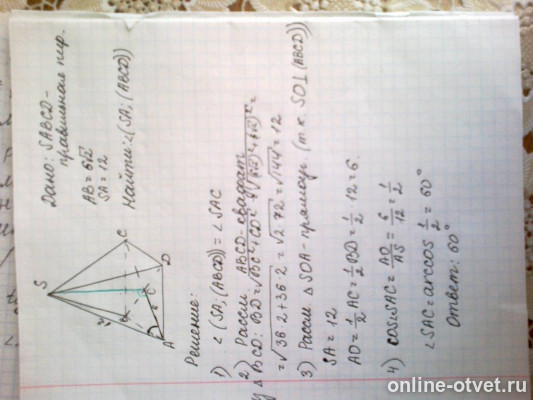 Дано: SABCD -
правильная пир.
AB = 6√2
SA = 12
Найти: ∠(SA; (ABCD))
S
C
D
A
Решение:
1) ∠(SA; (ABCD)) = ∠SAC
2) Рассм. ABCD - квадрат
△BCD: BD = √BC² + CD² = √(6√2)² + (6√2)² =
= √36·2 + 36·2 = √2·72 = √144 = 12
3) Рассм. △SOA - прямоуг. (т.к. SO⊥(ABCD))
SA = 12
AO = ½ AC = ½ BD = ½ · 12 = 6.
4) cos∠SAC = AO/AS = 6/12 = ½
∠SAC = arccos ½ = 60°
Ответ: 60°
online-otvet.ru